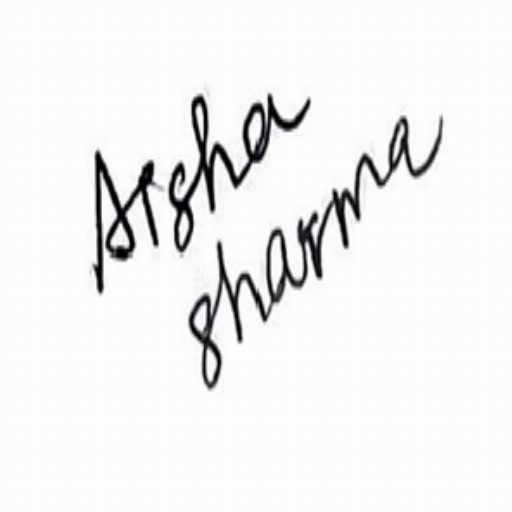 Aisha
sharma